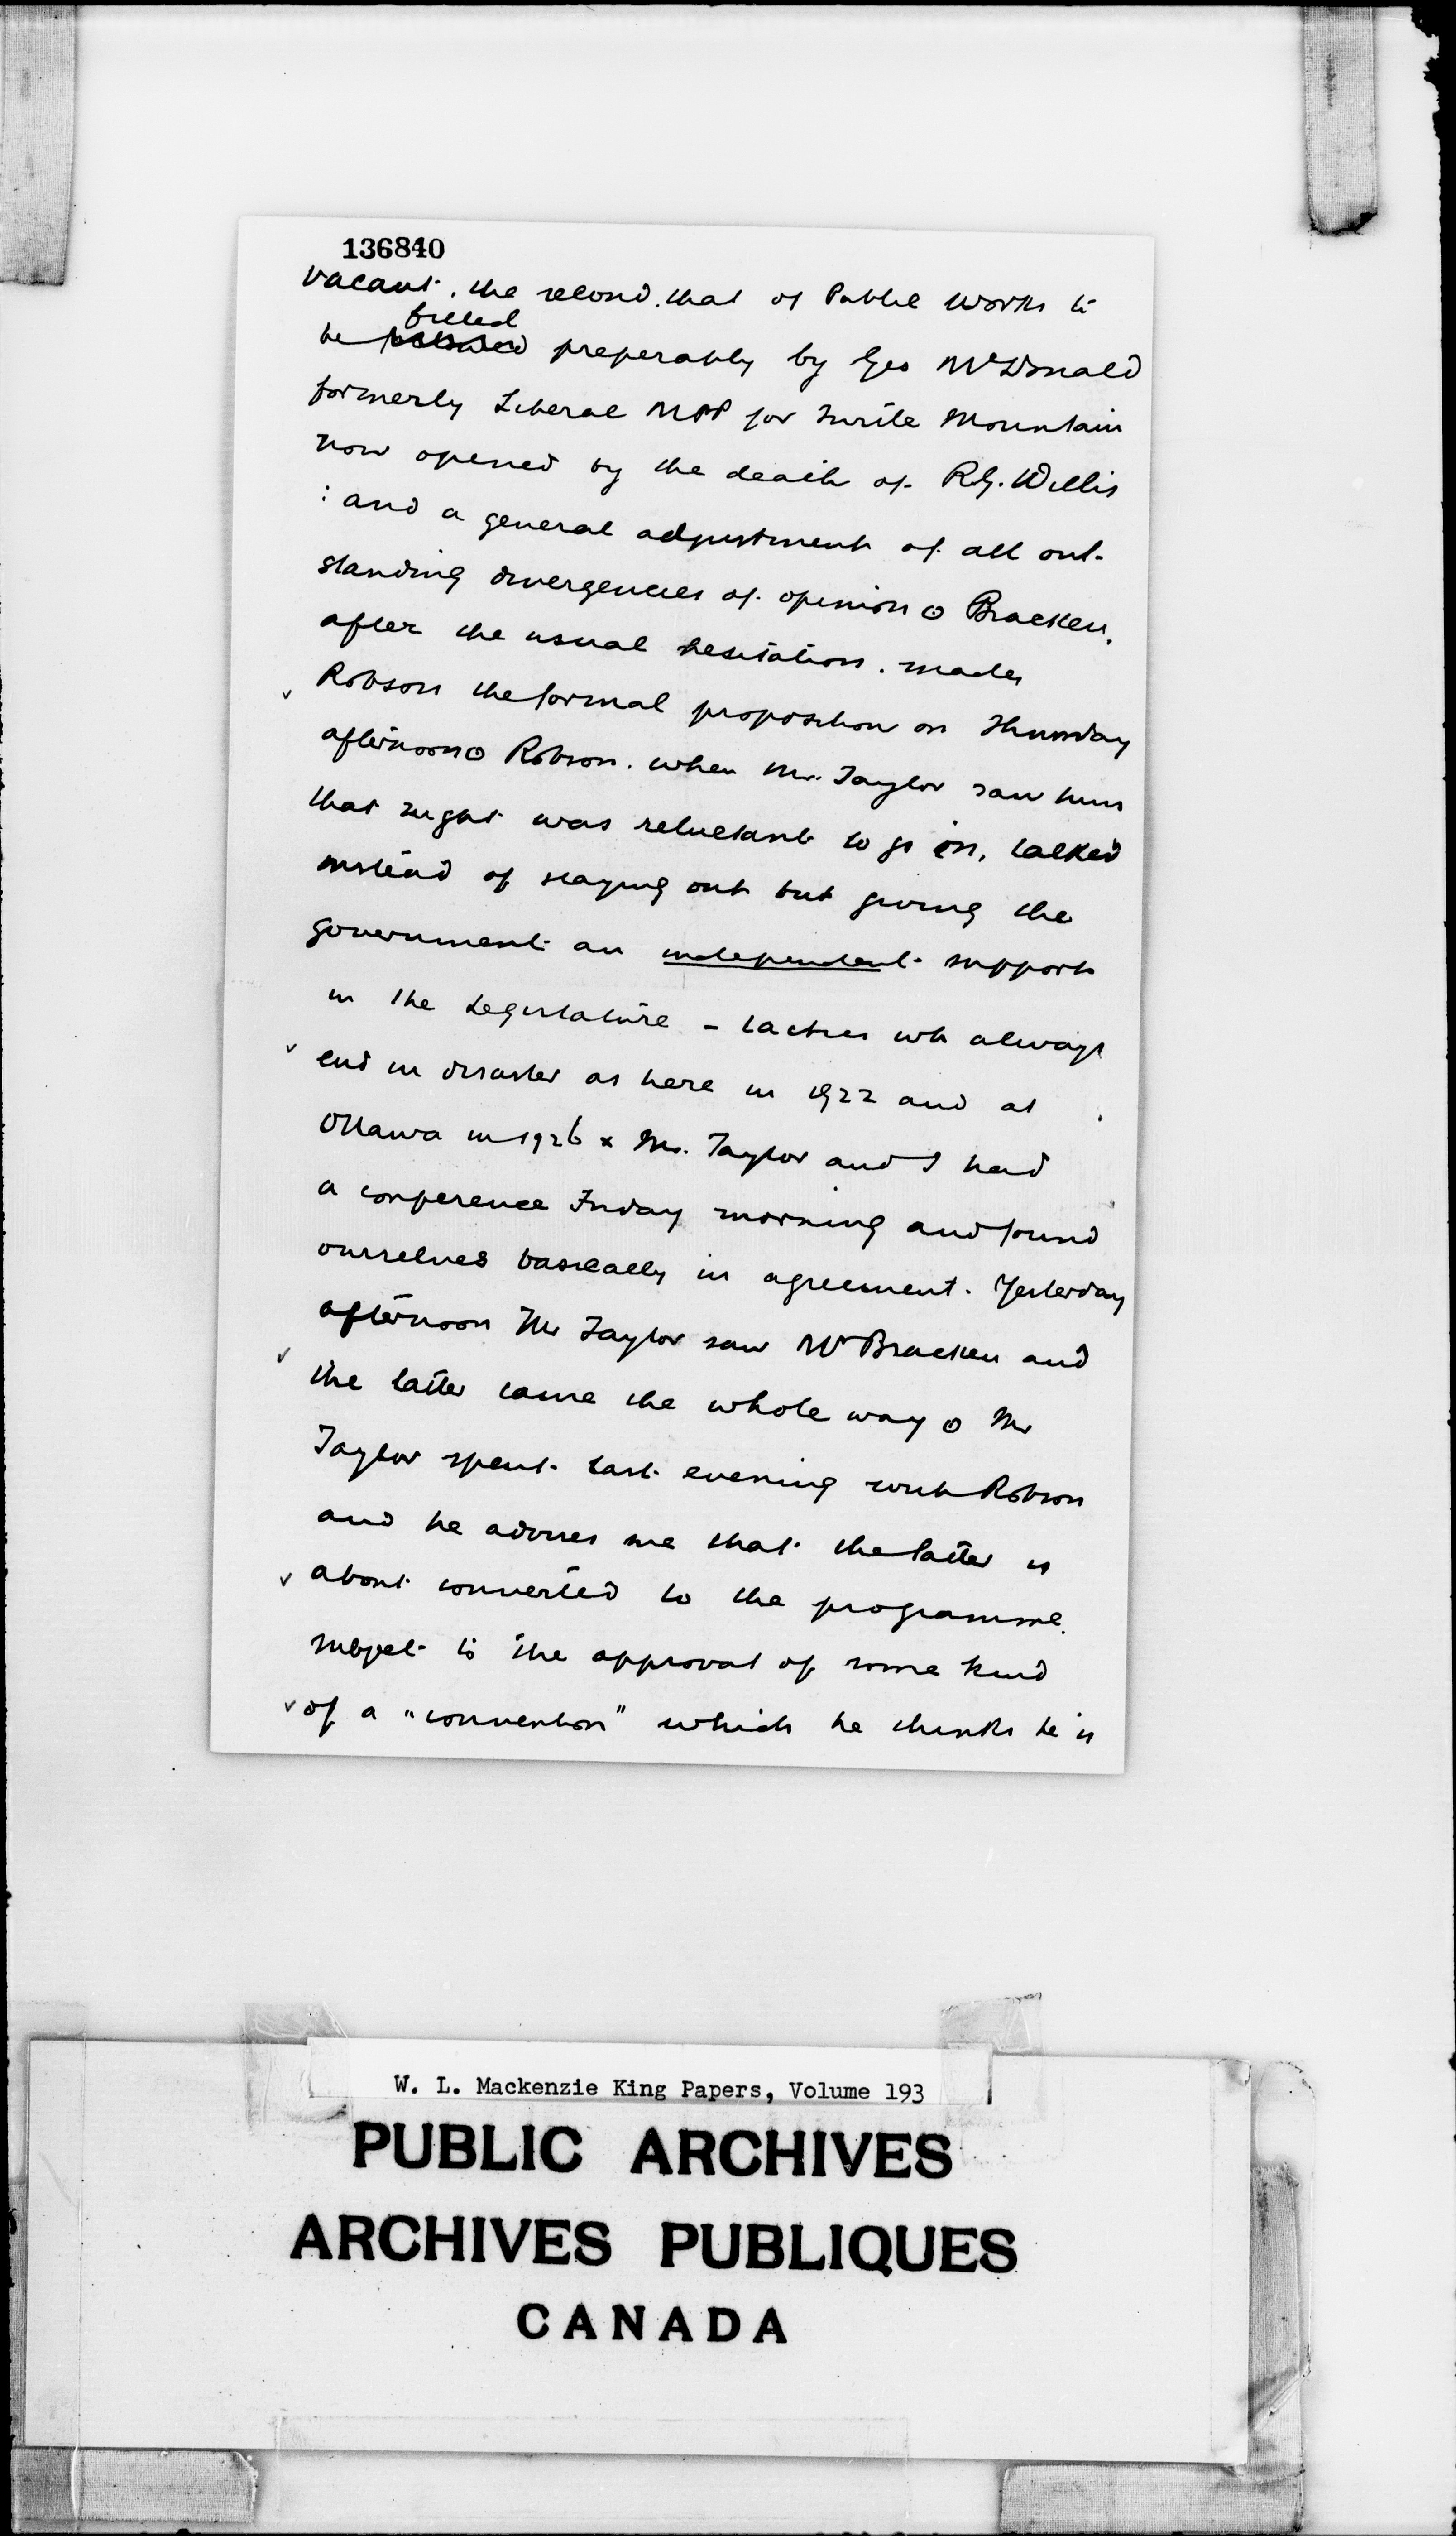 136840
vacant, the second, that of Public Works to
filled
be preferably by Geo McDonald
formerly Liberal MPP for Turtle Mountain
now opened by the death of R.G. Willis
: and a general adjustment of all out-
standing divergencies of opinion ⊙ Bracken,
after the usual hesitation, made
Robson the formal proposition on Thursday
afternoon ⊙ Robson, when Mr. Taylor saw him
that night was reluctant to go on, talked
instead of staying out but giving the
government an independent support
in the Legislature – tactics wh always
end in disaster as here in 1922 and at
Ottawa in 1926 x Mr. Taylor and I had
a conference Friday morning and found
ourselves basically in agreement. Yesterday
afternoon Mr Taylor saw Mr Bracken and
the latter came the whole way ⊙ Mr
Taylor spent last evening with Robson
and he advises me that the latter is
about converted to the programme,
subject to the approval of some kind
of a "convention" which he thinks he is
W. L. Mackenzie King Papers, Volume 193
PUBLIC ARCHIVES
ARCHIVES PUBLIQUES
CANADA